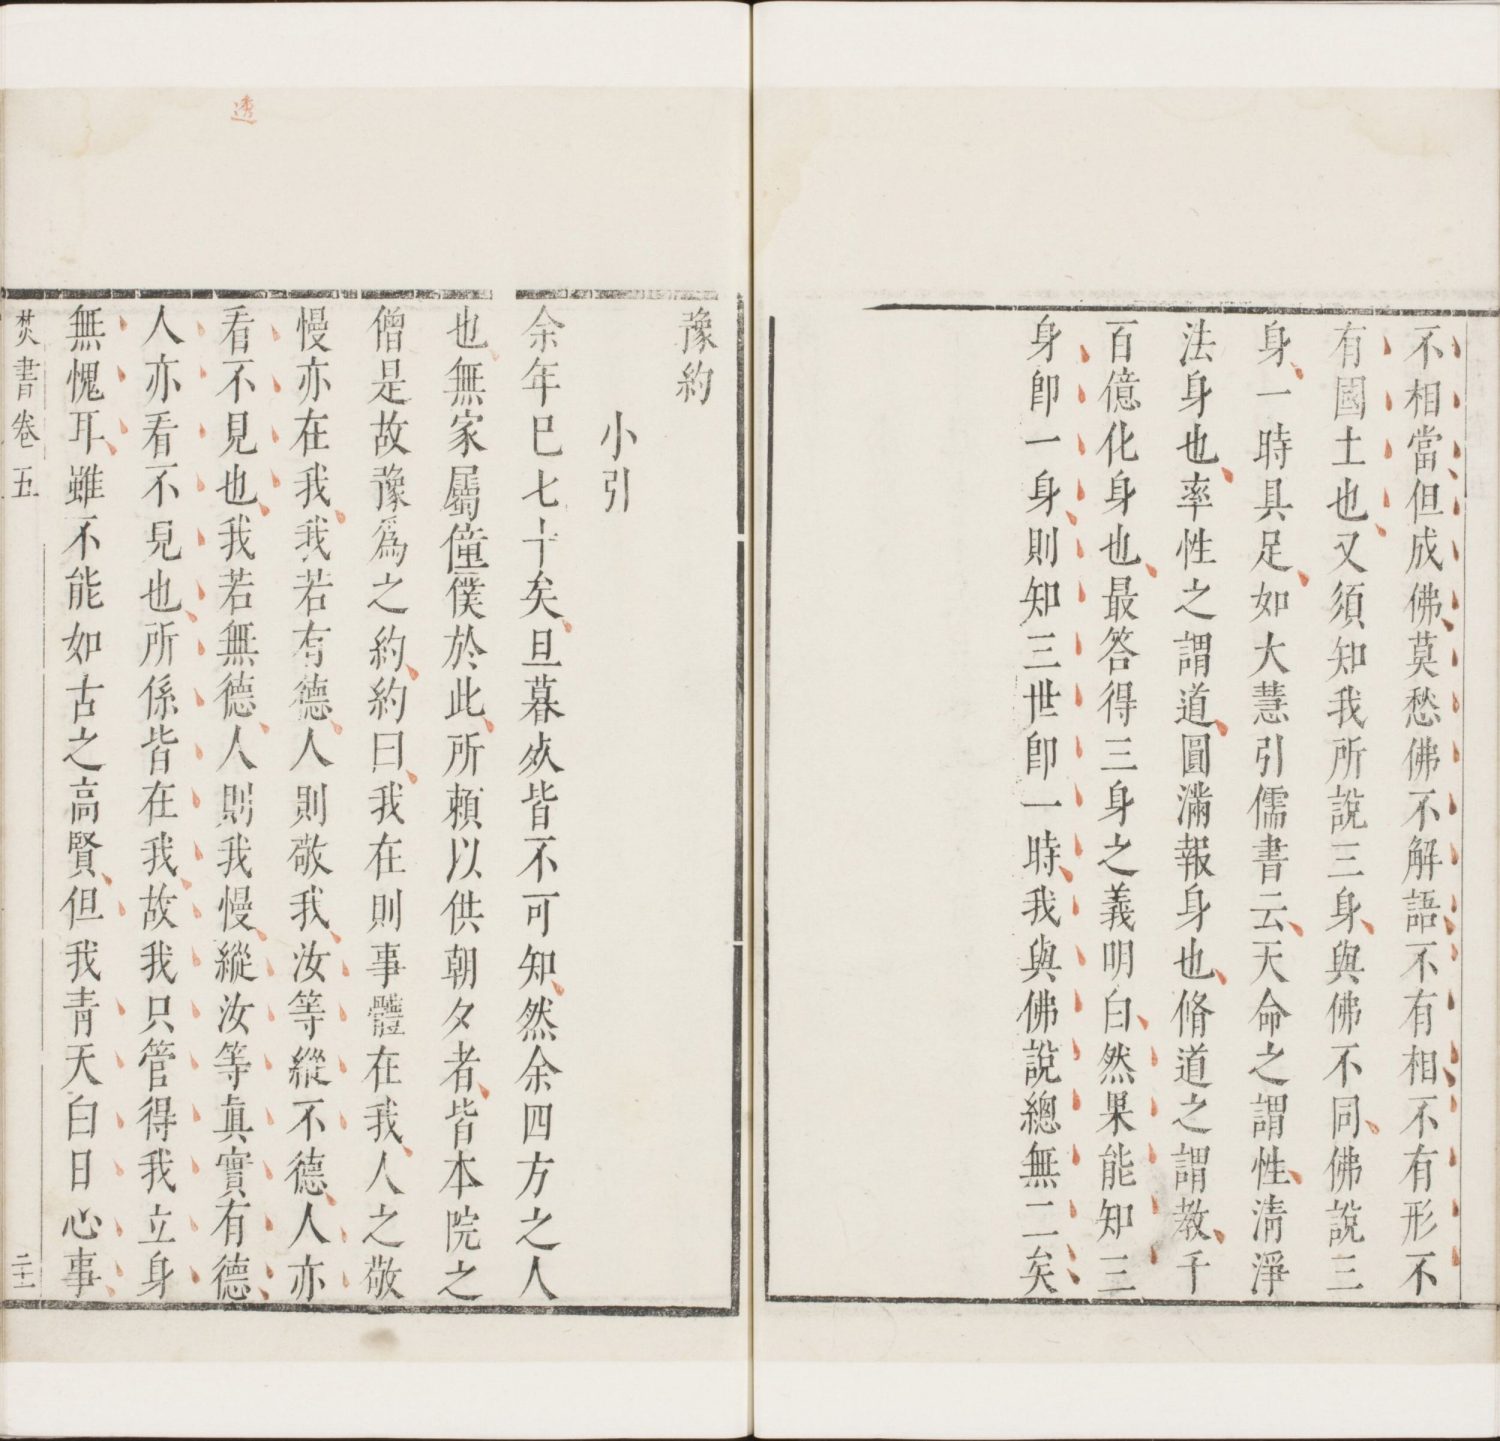 不相當但成佛莫愁佛不解語不有相不有形不
有國土也又須知我所說三身與佛不同佛說三
身一時具足如大慧引儒書云天命之謂性清淨
法身也率性之謂道圓滿報身也脩道之謂教千
百億化身也最答得三身之義明白然果能知三
身卽一身則知三世卽一時我與佛說總無二矣
透
豫約
小引
余年巳七十矣旦暮㱔皆不可知然余四方之人
也無家屬僮僕於此所賴以供朝夕者皆本院之
僧是故豫爲之約約曰我在則事體在我人之敬
慢亦在我我若有德人則敬我汝等縱不德人亦
看不見也我若無德人則我慢縱汝等眞實有德
人亦看不見也所係皆在我故我只管得我立身
無愧耳雖不能如古之高賢但我青天白日心事
焚書卷五
二十一